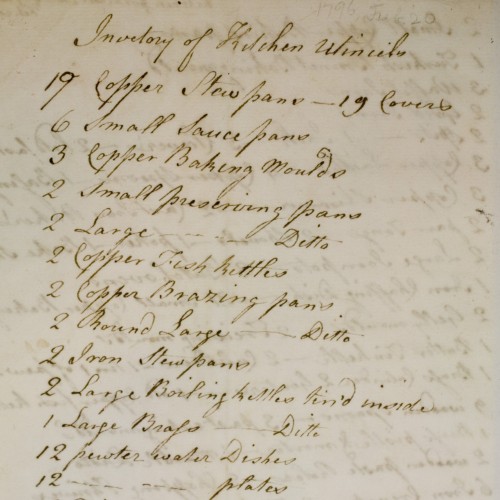 1796 June 20
Invetory of Kitchen Utincels
19 Copper Stew pans — 19 Covers
6 Small Sauce pans
3 Copper Baking Moulds
2 Small preserving pans
2 Large — — — Ditto
2 Copper Fish Kettles
2 Copper Brazing pans
2 Round Large — Ditto
2 Iron Stewpans
2 Large Boiling Kettles tin'd inside
1 Large Brass — Ditto
12 pewter water Dishes
12 — — — plates